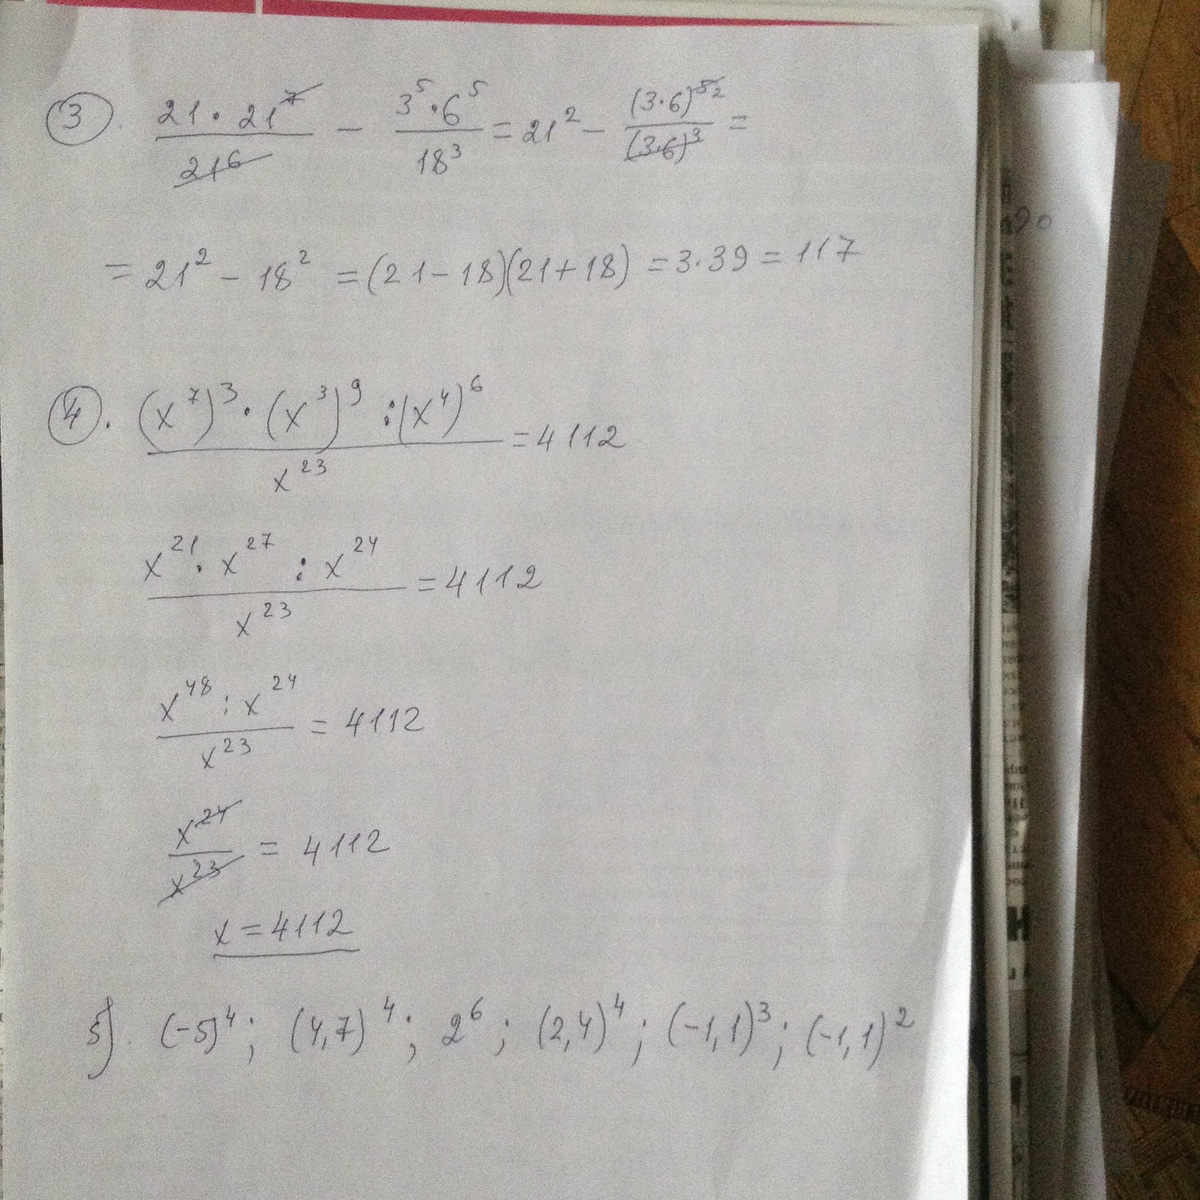 3. (21 · 21^7)/(21^6) − (3^5 · 6^5)/(18^3) = 21^2 − (3·6)^5 2/(3·6)^3 =
= 21^2 − 18^2 = (21−18)(21+18) = 3·39 = 117
4. ((x^7)^3 · (x^3)^9 : (x^4)^6)/(x^23) = 4112
(x^21 · x^27 : x^24)/(x^23) = 4112
(x^48 : x^24)/(x^23) = 4112
(x^24)/(x^23) = 4112
x = 4112
5). (-5)^4; (4,7)^4; 2^6; (2,4)^4; (-1,1)^3; (-1,1)^2